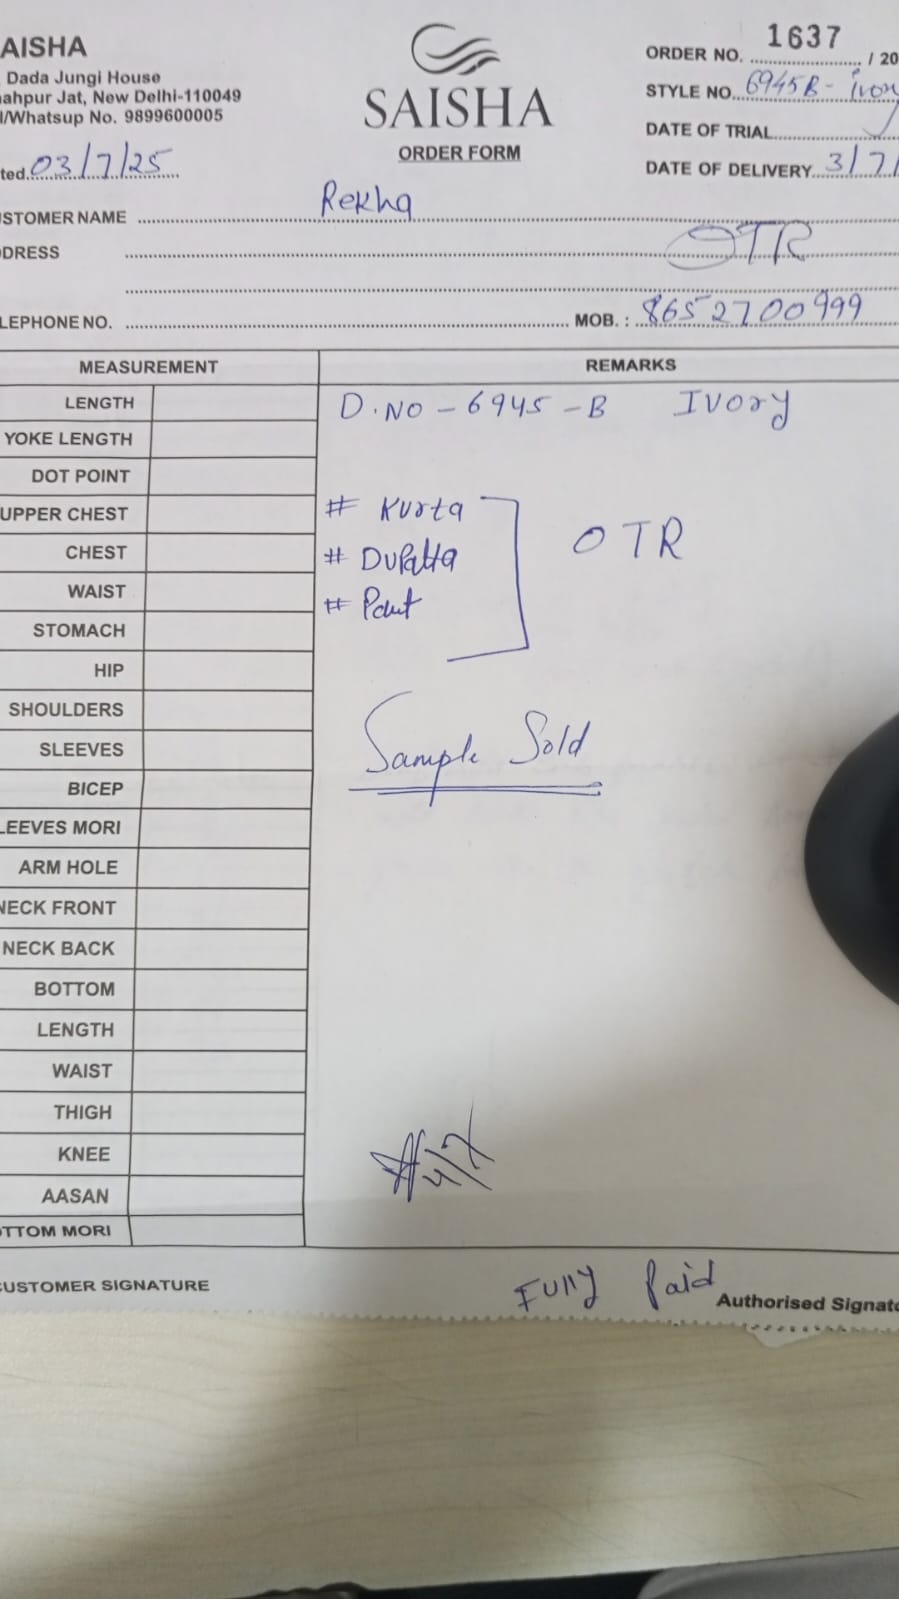 AISHA
Dada Jungi House
ahpur Jat, New Delhi-110049
l/Whatsup No. 9899600005
ted. 03/7/25
SAISHA
ORDER FORM
ORDER NO. 1637 / 20
STYLE NO. 6945B - Ivory
DATE OF TRIAL
DATE OF DELIVERY 3/7/
USTOMER NAME Rekha
DDRESS OTR
LEPHONE NO. MOB. : 8652700999
MEASUREMENT REMARKS
LENGTH D.NO - 6945 - B Ivory
YOKE LENGTH
DOT POINT
UPPER CHEST # Kurta
CHEST # Dupatta OTR
WAIST # Pant
STOMACH
HIP
SHOULDERS
SLEEVES Sample Sold
BICEP
LEEVES MORI
ARM HOLE
NECK FRONT
NECK BACK
BOTTOM
LENGTH
WAIST
THIGH
KNEE
AASAN
TTOM MORI
CUSTOMER SIGNATURE Fully Paid Authorised Signato